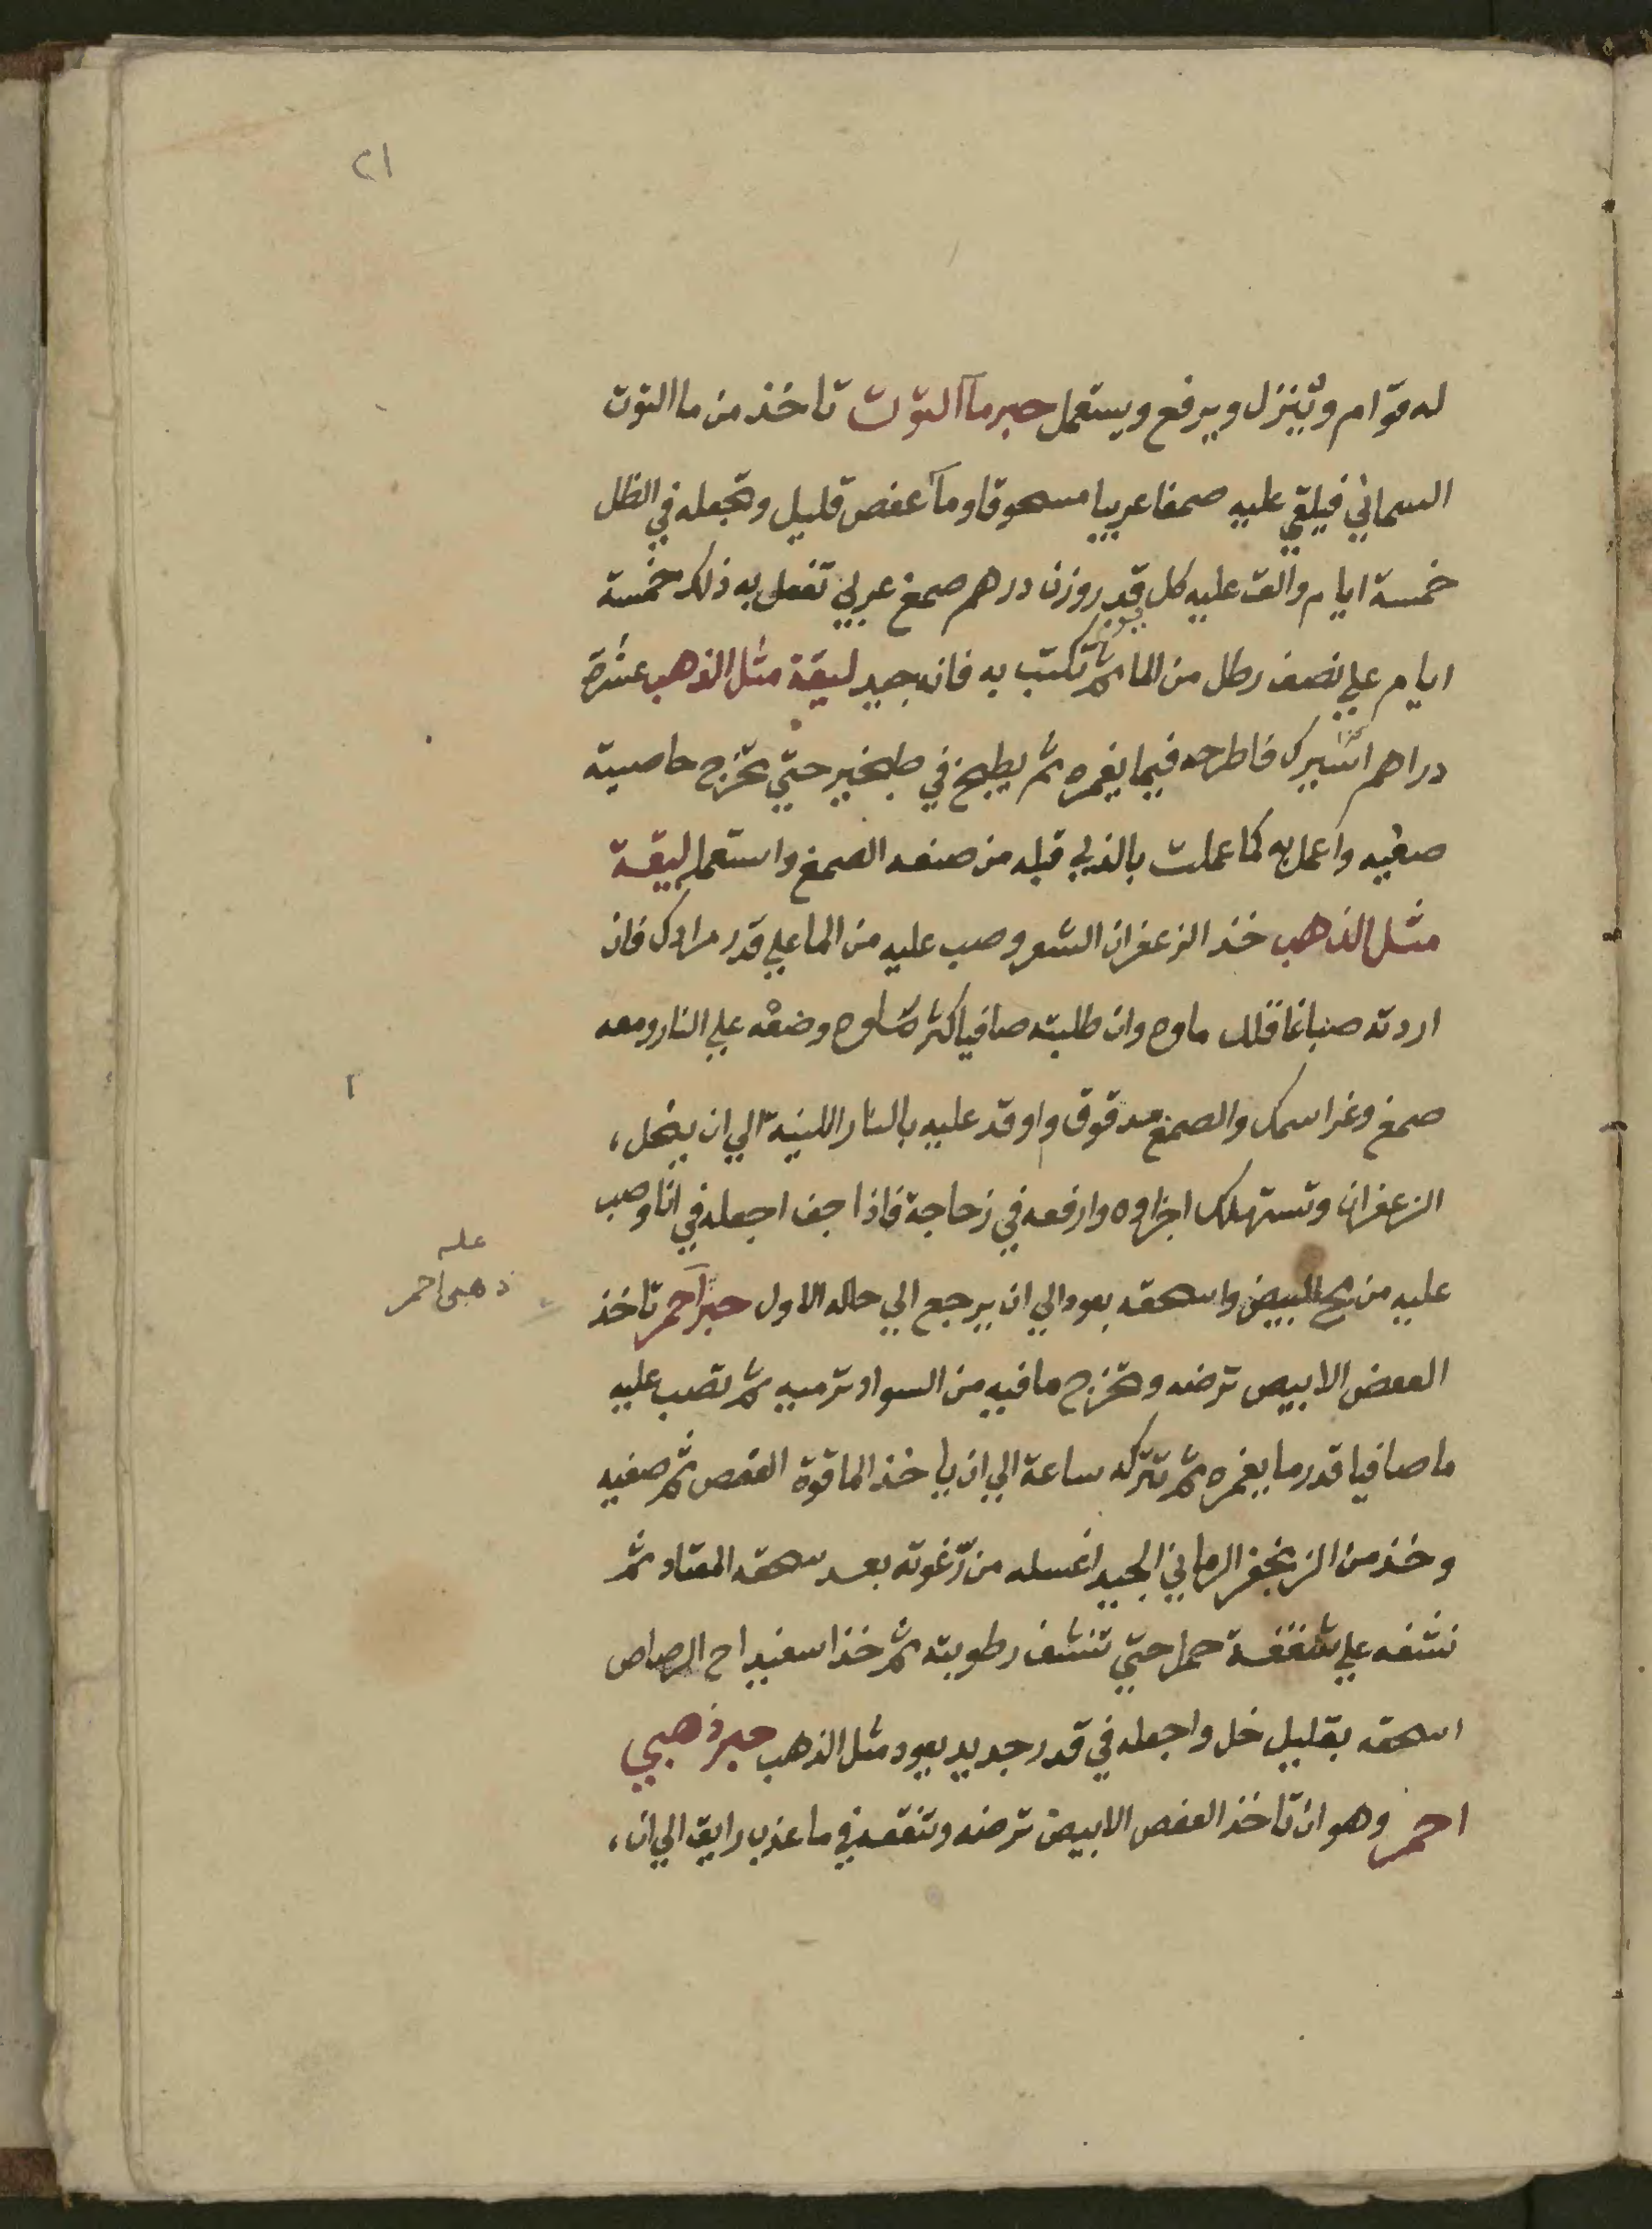 ٢١
له قوام وتنزل ويرفع ويستعمل حبر مآ التوت تاخذ من ما التوت
السماني فيلقي عليه صمغا عربيا مسحوقا ومآ عفص قليل وتجعله في الظل
خمسة ايام والق عليه كل يوم قدر وزن درهم صمغ عربي تفعل به ذلك خمسة
ايام علي نصف رطل من الما ثم تكتب به فانه جيد ليقة مثل الذهب عشرة
دراهم فاطرحه فيما يغمره ثم يطبخ في طبخير حتي تخرج خاصيته
صفيه واعمل به كما عملت بالذي قبله من صنعه الصمغ واستعمله ليقة
مثل الذهب خذ الزعفران الشعر وصب عليه من الما علي قدر مرادك فان
اردته صباغا قلل ماوه وان طلبته صافيا كثر ماوه وضعه علي النار ومعه
صمغ وغرا سمك والصمغ مدقوق واوقد عليه بالنار اللينة الي ان ينحل،
الزعفران وتستهلك اجزاوه وارفعه في زجاجة فاذا جف اجعله في انا وصب
عليه من مح البيض واسحقه يعود الي ان يرجع الي حاله الاول حبر احمر تاخذ
عله
ذهبى احمر
العفص الابيض ترضه وتخرج ما فيه من السواد ترميه ثم تصب عليه
ما صافيا قدر ما يغمره ثم تتركه ساعة الي ان ياخذ الما قوة العفص ثم صفيه
وخذ من الزنجفر الرماني الجيد اغسله من رغوته بعد سحقه المعتاد ثم
نشفه علي شقفة حمل حتي تنشف رطوبته ثم خذ اسفيداج الرصاص
اسحقه بقليل خل واجعله في قدر جديد يعود مثل الذهب حبر ذهبي
احمر وهو ان تاخذ العفص الابيض ترضه وتنقعه في ما عذب رايق الي ان،